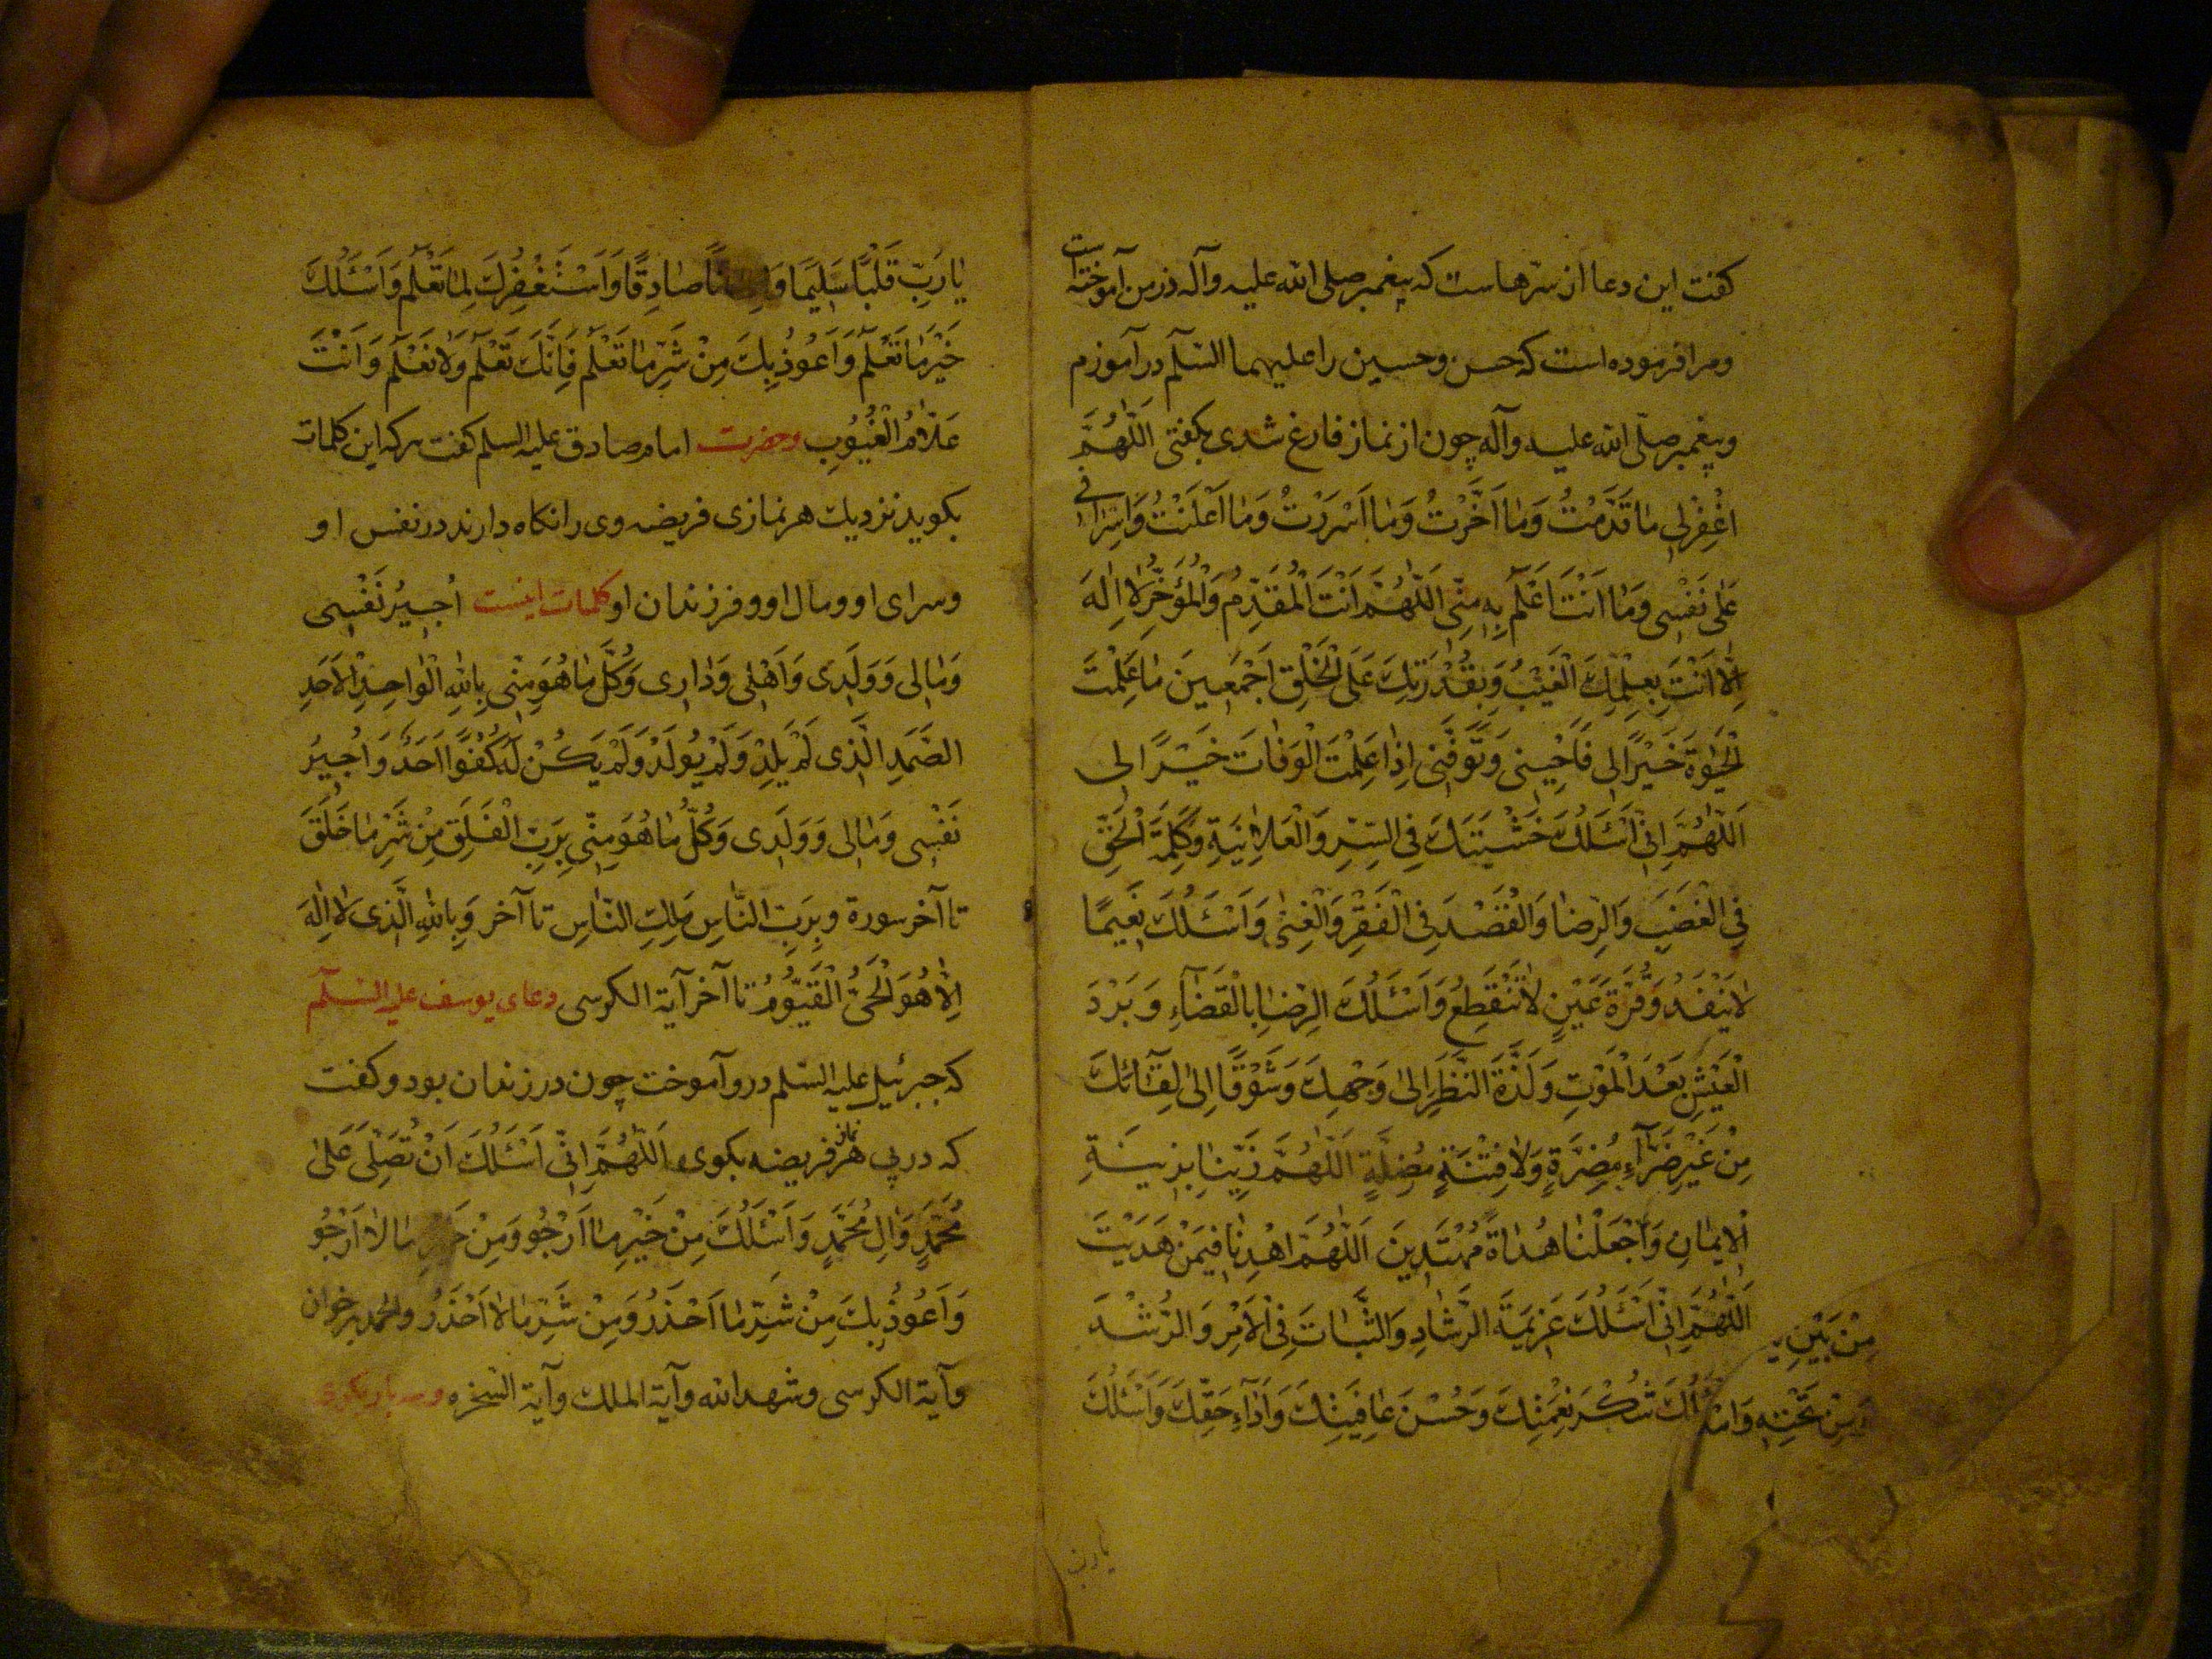 كفت اين دعا از سرّهاست كه پيغمبر صلى الله عليه وآله در من آموخته است
ومرا فرموده است كه حسن وحسين را عليهما السّلم در آموزم
وپيغمبر صلّى الله عليه وآله چون از نماز فارغ شدى بكفتى اَللّهُمَّ
اغْفِرْلى مٰا قَدَّمْتُ وَمٰا اَخَّرْتُ وَمٰا اَسْرَرْتُ وَمٰا اَعْلَنْتُ وَاِسْرٰافى
عَلىٰ نَفْسى وَمٰا اَنْتَ اَعْلَمُ بِهِ مِنّى اَللّهُمَّ اَنْتَ الْمُقَدِّمُ وَالْمُؤَخِّرُ لاٰ اِلٰهَ
اِلّاٰ اَنْتَ بِعِلْمِكَ الْغَيْبَ وَبِقُدْرَتِكَ عَلَى الْخَلْقِ اَجْمَعينَ مٰا عَلِمْتَ
الْحَيٰوةَ خَيْرًا لى فَاَحْيِنى وَتَوَفَّنى اِذٰا عَلِمْتَ الْوَفٰاتَ خَيْرًا لى
اَللّٰهُمَّ اِنّى اَسْئَلُكَ خَشْيَتَكَ فِى السِّرِّ وَالْعَلاٰنِيَةِ وَكَلِمَةَ الْحَقِّ
فِى الْغَضَبِ وَالرِّضٰا وَالْقَصْدَ فِى الْفَقْرِ وَالْغِنىٰ وَاَسْئَلُكَ نَعيمًا
لاٰ يَنْفَدُ وَقُرَّةَ عَيْنٍ لاٰ تَنْقَطِعُ وَاَسْئَلُكَ الرِّضٰا بِالْقَضٰآءِ وَبَرْدَ
الْعَيْشِ بَعْدَ الْمَوْتِ وَلَذَّةَ النَّظَرِ اِلىٰ وَجْهِكَ وَشَوْقًا اِلىٰ لِقٰآئِكَ
مِنْ غَيْرِ ضَرّٰآءٍ مُضِرَّةٍ وَلاٰ فِتْنَةٍ مُضِلَّةٍ اَللّٰهُمَّ زَيِّنّٰا بِزينَةِ
الْاِيمٰانِ وَاجْعَلْنٰا هُدٰاةً مُهْتَدينَ اَللّٰهُمَّ اهْدِنٰا فيمَنْ هَدَيْتَ
اَللّٰهُمَّ اِنّى اَسْئَلُكَ عَزيمَةَ الرَّشٰادِ وَالثَّبٰاتَ فِى الْاَمْرِ وَالرُّشْدَ
وَاَسْئَلُكَ شُكْرَ نِعْمَتِكَ وَحُسْنَ عٰافِيَتِكَ وَاَدٰآءَ حَقِّكَ وَاَسْئَلُكَ
مِنْ بَيْنِ
وَمِنْ تَحْتِهِ
يا رب
يٰا رَبِّ قَلْبًا سَليمًا وَلِسٰانًا صٰادِقًا وَاَسْتَغْفِرُكَ لِمٰا تَعْلَمُ وَاَسْئَلُكَ
خَيْرَ مٰا تَعْلَمُ وَاَعُوذُ بِكَ مِنْ شَرِّ مٰا تَعْلَمُ فَاِنَّكَ تَعْلَمُ وَلاٰ نَعْلَمُ وَاَنْتَ
عَلّاٰمُ الْغُيُوبِ وحضرت امام صادق عليه السلم كفت هركه اين كلمات
بكويد نزديك هر نمازى فريضه وى را نكاه دارند در نفس او
وسراى او ومال او وفرزندان او كلمات اينست اُجيرُ نَفْسى
وَمٰالى وَوَلَدى وَاَهْلى وَدٰارى وَكُلَّ مٰا هُوَ مِنّى بِاللهِ الْوٰاحِدِ الْاَحَدِ
الصَّمَدِ الَّذى لَمْ يَلِدْ وَلَمْ يُولَدْ وَلَمْ يَكُنْ لَهُ كُفُوًا اَحَدٌ وَاُجيرُ
نَفْسى وَمٰالى وَوَلَدى وَكُلَّ مٰا هُوَ مِنّى بِرَبِّ الْفَلَقِ مِنْ شَرِّ مٰا خَلَقَ
تا آخر سورة وبِرَبِّ النّٰاسِ مَلِكِ النّٰاسِ تا آخر وَبِاللهِ الَّذى لاٰ اِلٰهَ
اِلّاٰ هُوَ الْحَىُّ الْقَيُّومُ تا آخر آية الكرسى دعاى يوسف عليه السّلم
كه جبرئيل عليه السّلم درو آموخت چون در زندان بود وكفت
كه در پى هر نماز فريضه بكوى اَللّٰهُمَّ اِنّى اَسْئَلُكَ اَنْ تُصَلِّىَ عَلىٰ
مُحَمَّدٍ وَاٰلِ مُحَمَّدٍ وَاَسْئَلُكَ مِنْ خَيْرِ مٰا اَرْجُو وَمِنْ خَيْرِ مٰا لاٰ اَرْجُو
وَاَعُوذُ بِكَ مِنْ شَرِّ مٰا اَحْذَرُ وَمِنْ شَرِّ مٰا لاٰ اَحْذَرُ والحمد برخوان
وآية الكرسى وشهد الله وآية الملك وآية السّخره وسه بار بكوى